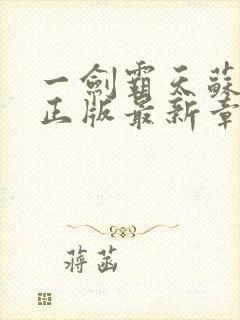 一劍霸天蘇
正版最新章
蔣菡